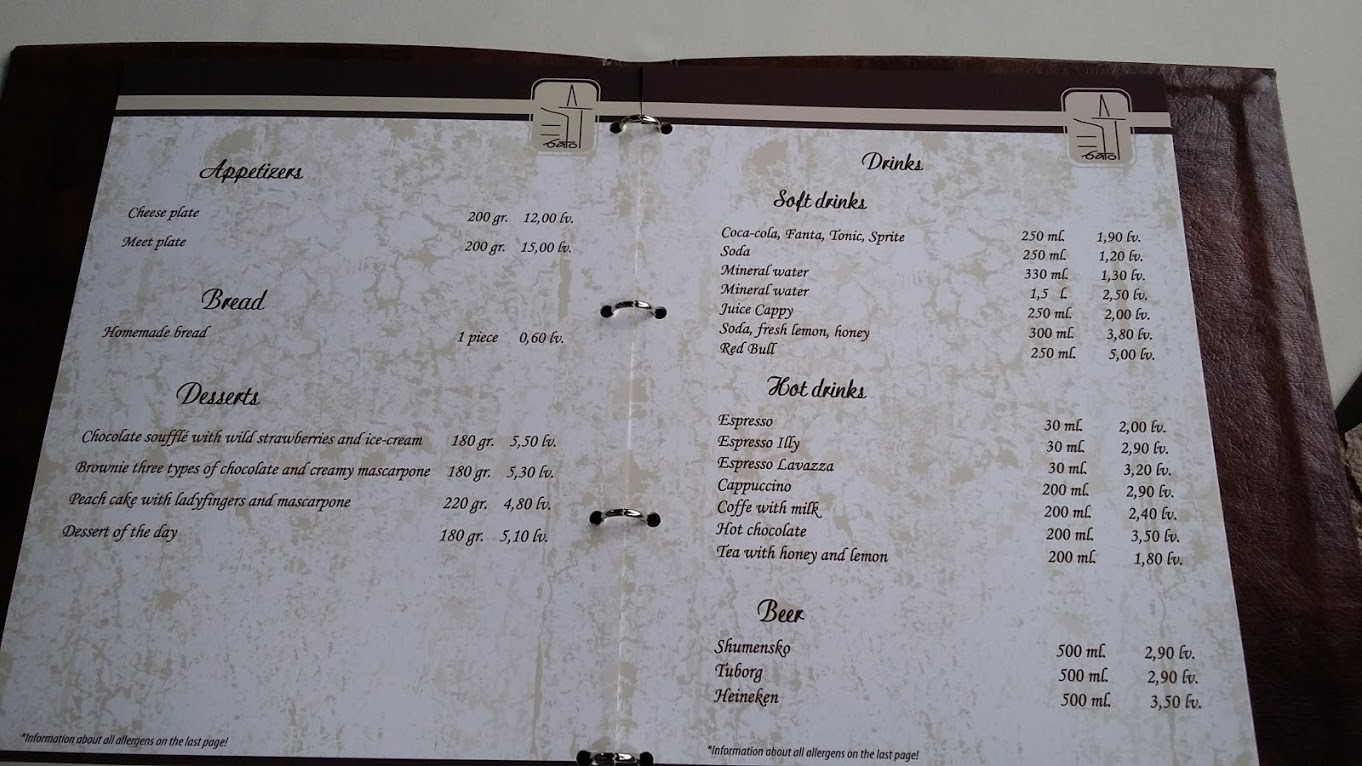 Appetizers
Cheese plate 200 gr. 12,00 lv.
Meet plate 200 gr. 15,00 lv.
Bread
Homemade bread 1 piece 0,60 lv.
Desserts
Chocolate soufflé with wild strawberries and ice-cream 180 gr. 5,50 lv.
Brownie three types of chocolate and creamy mascarpone 180 gr. 5,30 lv.
Peach cake with ladyfingers and mascarpone 220 gr. 4,80 lv.
Dessert of the day 180 gr. 5,10 lv.
*Information about all allergens on the last page!
Drinks
Soft drinks
Coca-cola, Fanta, Tonic, Sprite 250 ml. 1,90 lv.
Soda 250 ml. 1,20 lv.
Mineral water 330 ml. 1,30 lv.
Mineral water 1,5 l. 2,50 lv.
Juice Cappy 250 ml. 2,00 lv.
Soda, fresh lemon, honey 300 ml. 3,80 lv.
Red Bull 250 ml. 5,00 lv.
Hot drinks
Espresso 30 ml. 2,00 lv.
Espresso Illy 30 ml. 2,90 lv.
Espresso Lavazza 30 ml. 3,20 lv.
Cappuccino 200 ml. 2,90 lv.
Coffe with milk 200 ml. 2,40 lv.
Hot chocolate 200 ml. 3,50 lv.
Tea with honey and lemon 200 ml. 1,80 lv.
Beer
Shumensko 500 ml. 2,90 lv.
Tuborg 500 ml. 2,90 lv.
Heineken 500 ml. 3,50 lv.
*Information about all allergens on the last page!